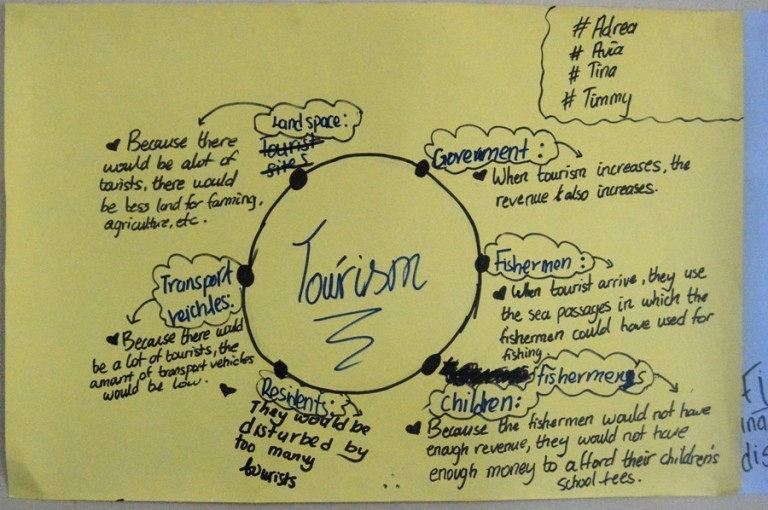 # Adrea
# Avia
# Tina
# Timmy
Landspace:
Tourist
sites
♥ Because there
would be alot of
tourists, there would
be less land for farming,
agriculture, etc.
Government:
♥ When tourism increases, the
revenue also increases.
Fishermen:
♥ When tourist arrive, they use
the sea passages in which the
fishermen could have used for
fishing
fishermens
Children:
♥ Because the fishermen would not have
enough revenue, they would not have
enough money to afford their children's
school fees.
Residents:
They would be
disturbed by
too many
tourists
Transport
veichles:
♥ Because there would
be a lot of tourists, the
amount of transport vehicles
would be low.
Tourism
ina
dis